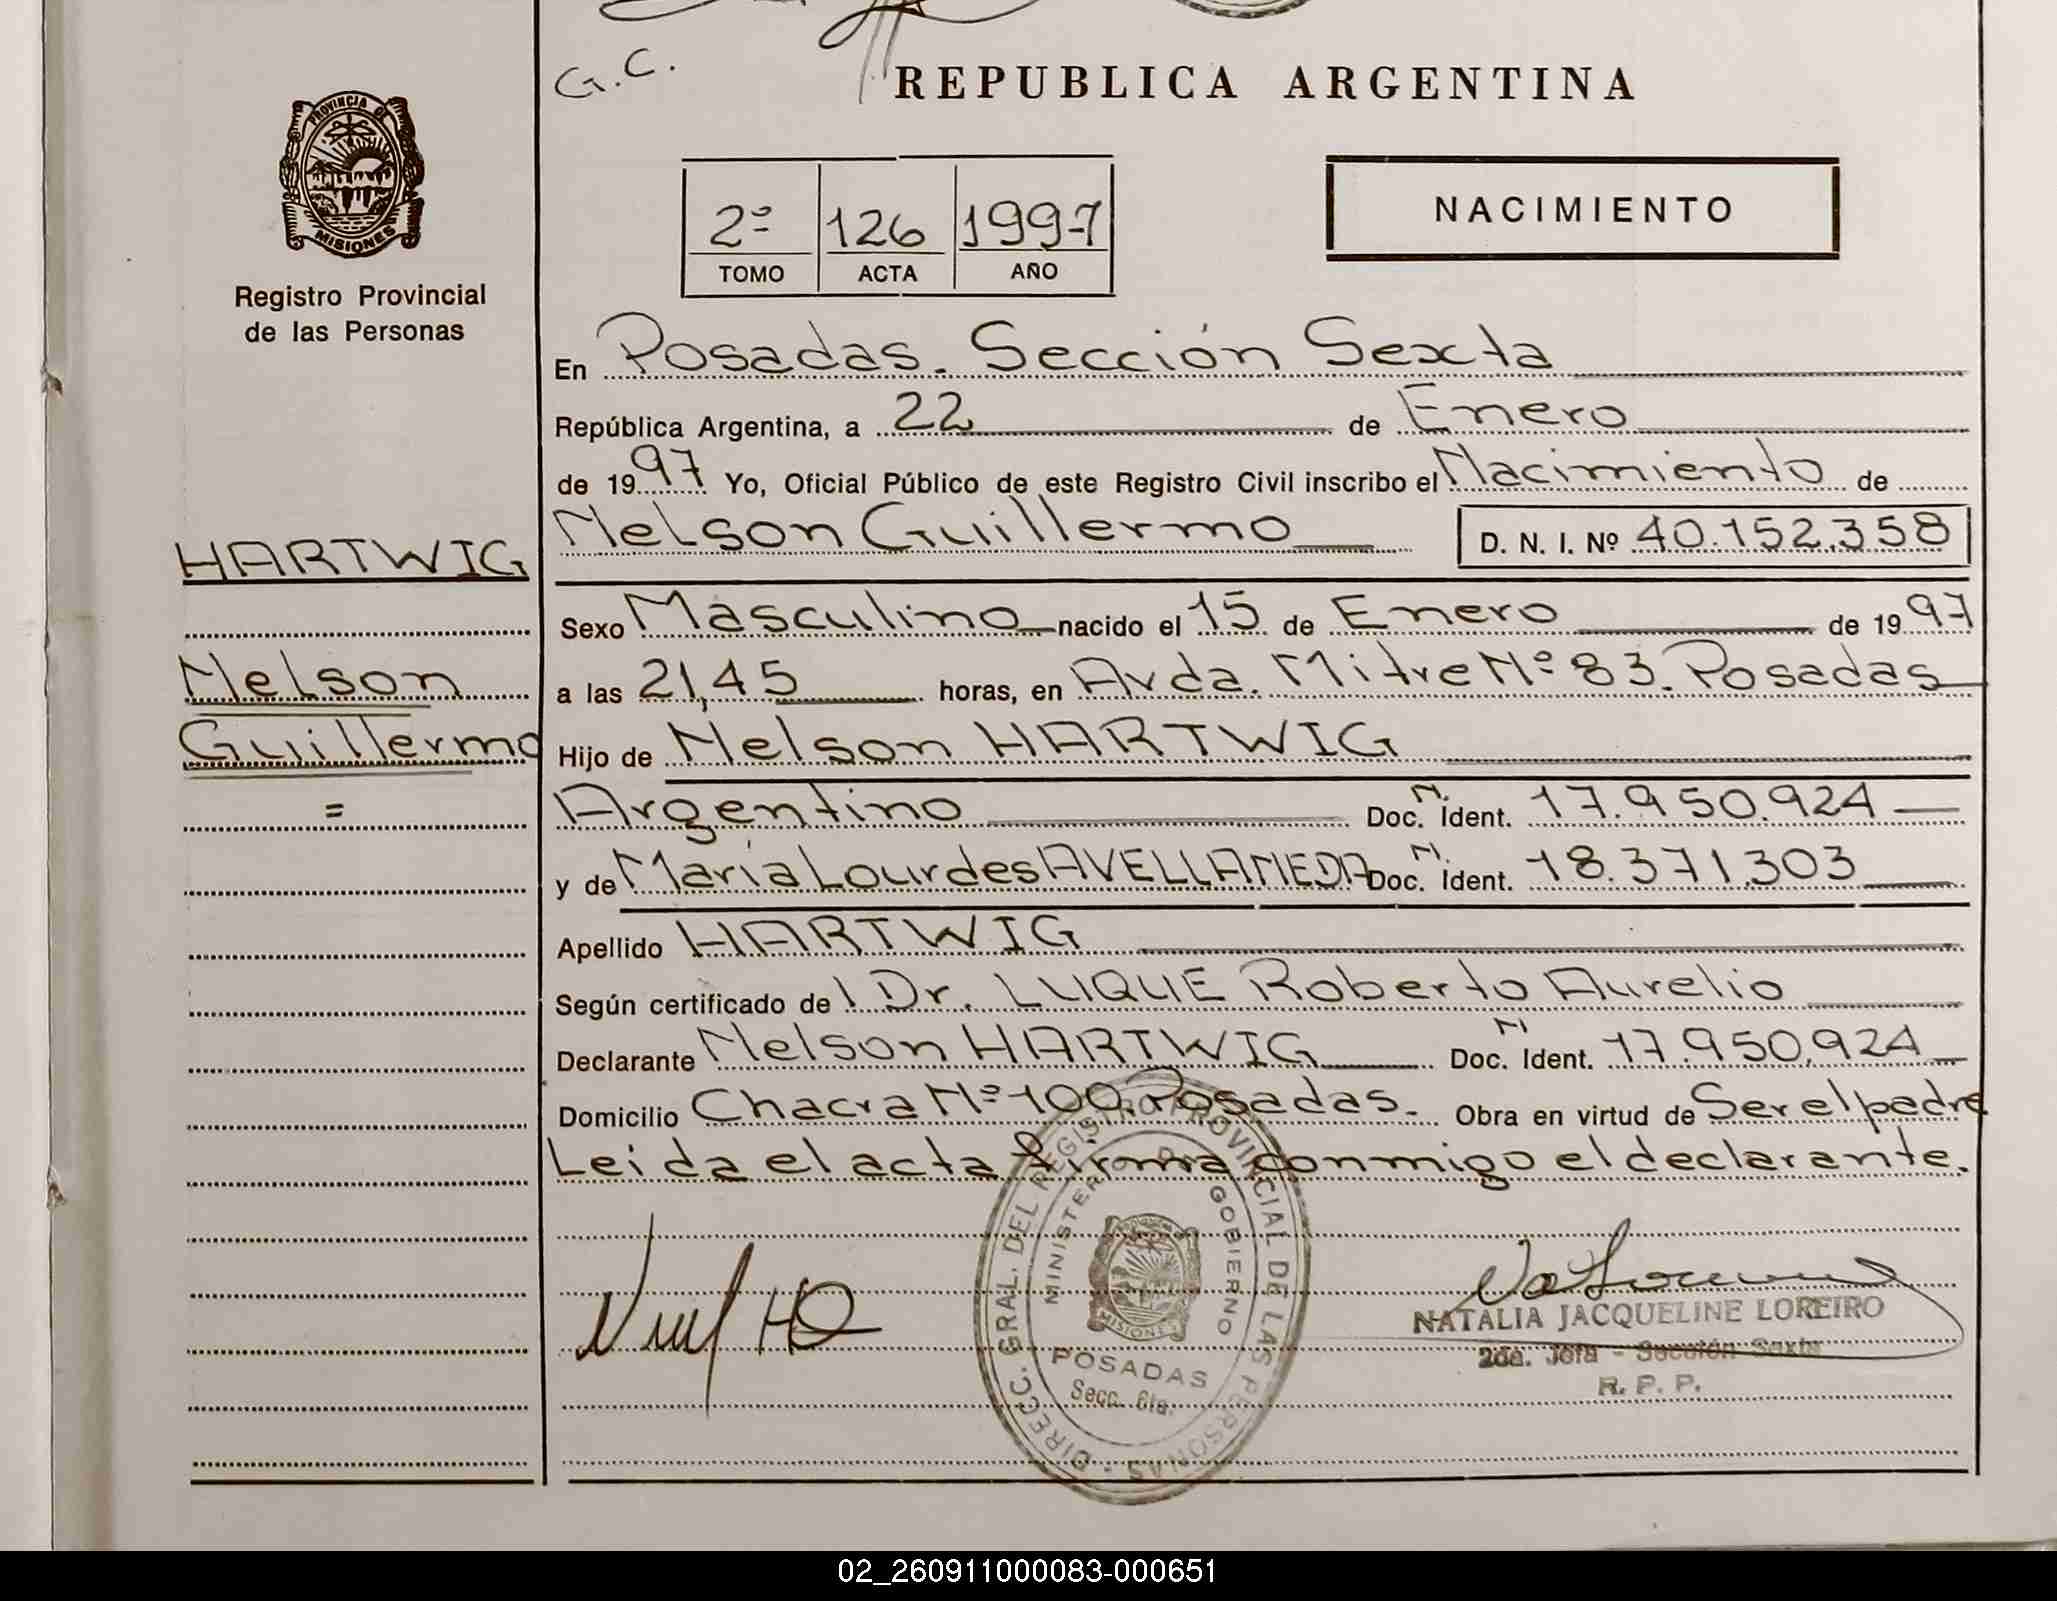 G. C.
REPUBLICA ARGENTINA
PROVINCIA DE
MISIONES
Registro Provincial
de las Personas
2º 126 1997
TOMO ACTA AÑO
NACIMIENTO
En Posadas. Sección Sexta
República Argentina, a 22 de Enero
de 1997 Yo, Oficial Público de este Registro Civil inscribo el Nacimiento de
Nelson Guillermo D. N. I. Nº 40.152.358
HARTWIG
Nelson
Guillermo
=
Sexo Masculino nacido el 15 de Enero de 1997
a las 21,45 horas, en Avda. Mitre Nº 83. Posadas
Hijo de Nelson HARTWIG
Argentino Doc. N. Ident. 17.950.924
y de María Lourdes AVELLANEDA Doc. N. Ident. 18.371.303
Apellido HARTWIG
Según certificado de l Dr. LUQUE Roberto Aurelio
Declarante Nelson HARTWIG Doc. N Ident. 17.950.924
Domicilio Chacra Nº 100. Posadas. Obra en virtud de Ser el padre
Leida el acta firma conmigo el declarante.
DIRECC. GRAL. DEL REGISTRO PROVINCIAL DE LAS PERSONAS -
MINISTERIO DE GOBIERNO
MISIONES
POSADAS
Secc. 6ta.
NATALIA JACQUELINE LOREIRO
2da. Jefa - Sección Sexta
R. P. P.
02_260911000083-000651